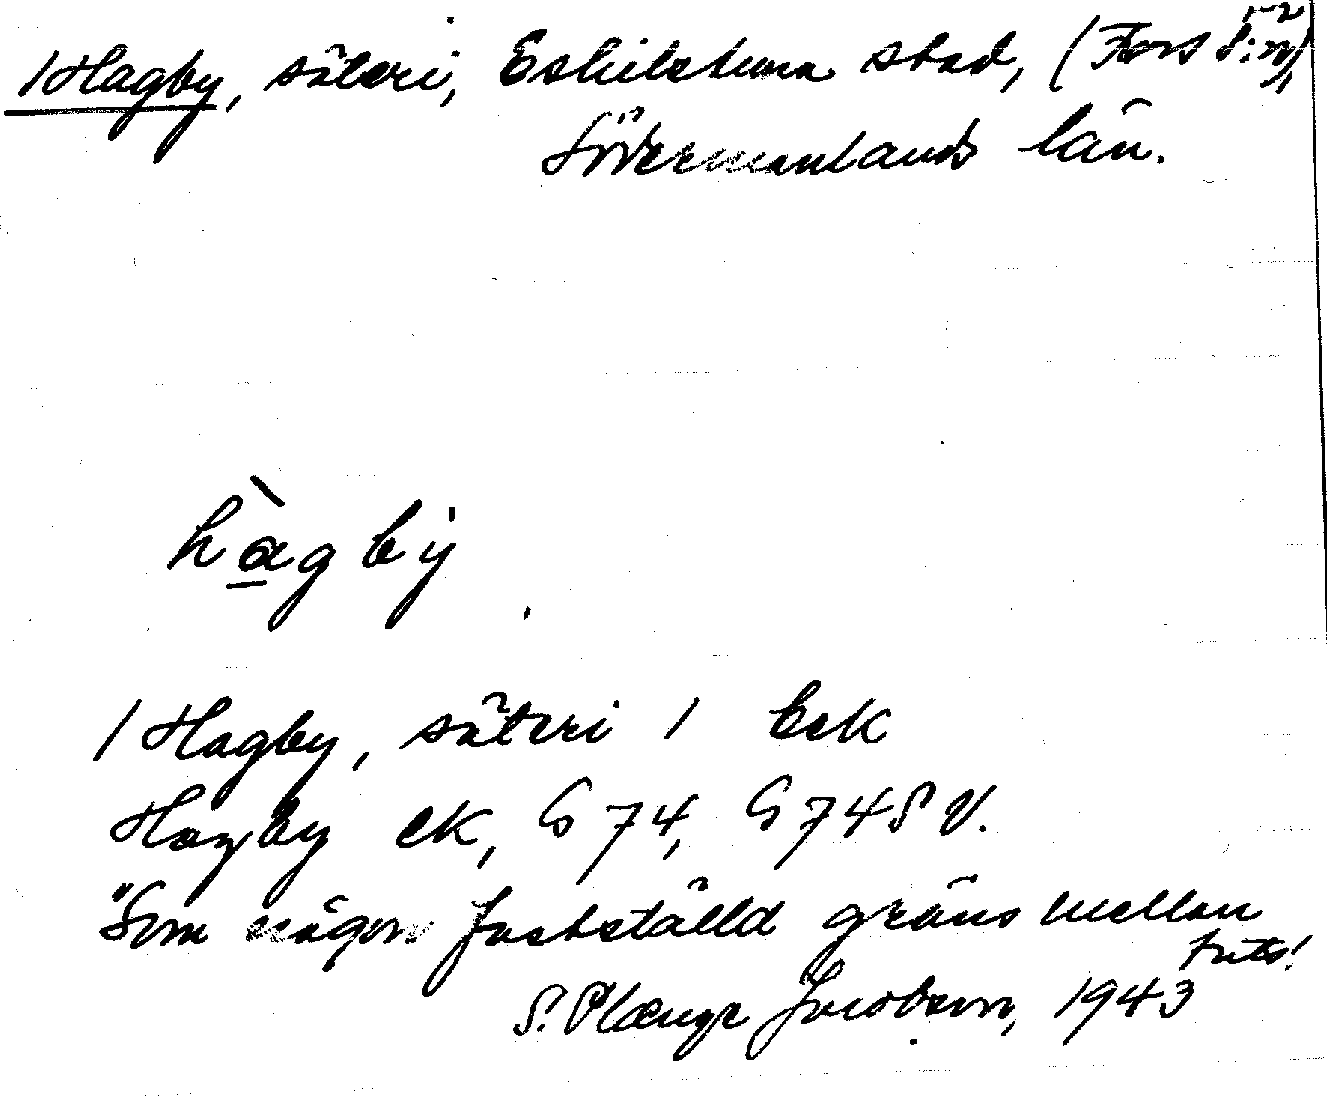 / Hagby, säteri, Eskilstuna stad, (Fors s:n),
Södermanlands län.
hàgby
/ Hagby, säteri / Eek
Hagby ek, G 74, G 74 SV.
"Som någon fastställd gräns mellan
forts!
S. Plænge Jacobson, 1943